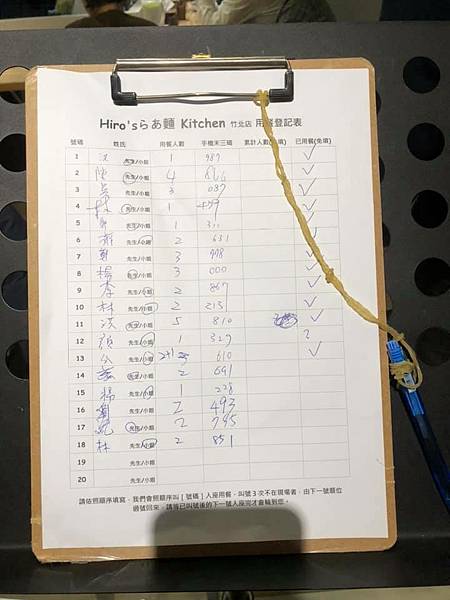 Hiro'sらあ麵 Kitchen 竹北店 用餐登記表
號碼 姓氏 用餐人數 手機末三碼 累計人數(免填) 已用餐(免填)
1 沈 先生/小姐 1 987 ✓
2 陳 先生/小姐 4 ✓
3 吳 先生/小姐 3 037 ✓
4 林 先生/小姐 1 459 ✓
5 先生/小姐 1 ✓
6 先生/小姐 2 631 ✓
7 鄭 先生/小姐 3 998 ✓
8 楊 先生/小姐 3 000 ✓
9 李 先生/小姐 2 867 ✓
10 林 先生/小姐 2 213 ✓
11 洪 先生/小姐 5 810 ✓
12 顏 先生/小姐 1 327 ?
13 公 先生/小姐 610 ✓
14 先生/小姐 2 641
15 楊 先生/小姐 1 228
16 劉 先生/小姐 2 493
17 紀 先生/小姐 2 745
18 林 先生/小姐 2 851
19 先生/小姐
20 先生/小姐
請依照順序填寫，我們會照順序叫 [ 號碼 ] 入座用餐，叫號 3 次不在現場者，由下一號順位
過號回來，請等已叫號後的下一號入座完才會輪到您。